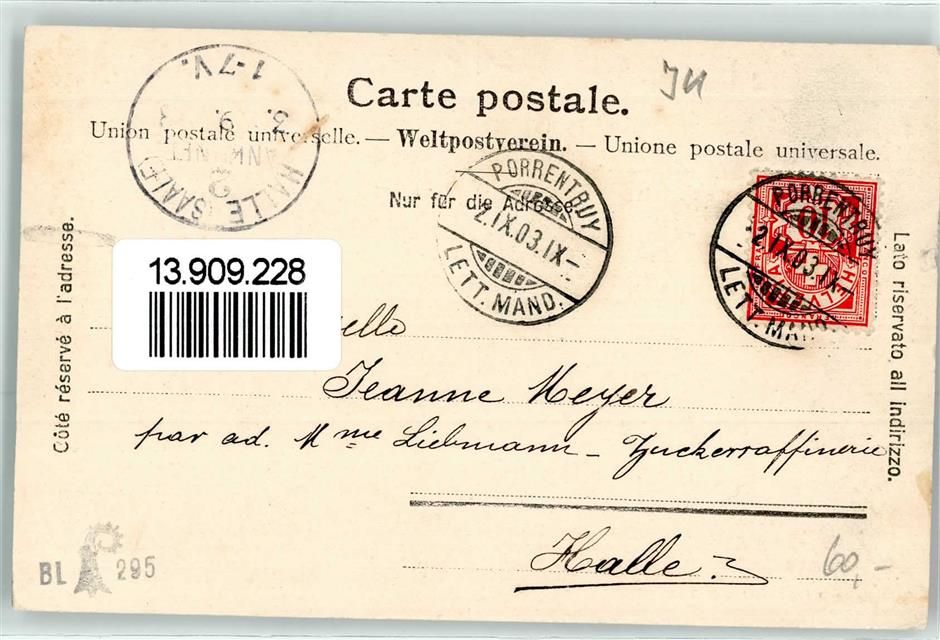 Carte postale.
JU
Union postale universelle. — Weltpostverein. — Unione postale universale.
Nur für die Adresse.
HALLE (SAALE)
2
1-7V.
PORRENTRUY
2.IX.03.IX-
LETT. MAND.
PORRENTRUY
2.IX.03.IX-
LETT. MAND.
Côté réservé à l'adresse.
Lato riservato all indirizzo.
13.909.228
elle
Jeanne Meyer
par ad. Mme Liebmann – Zuckerraffinerie
Halle
60,-
BL 295